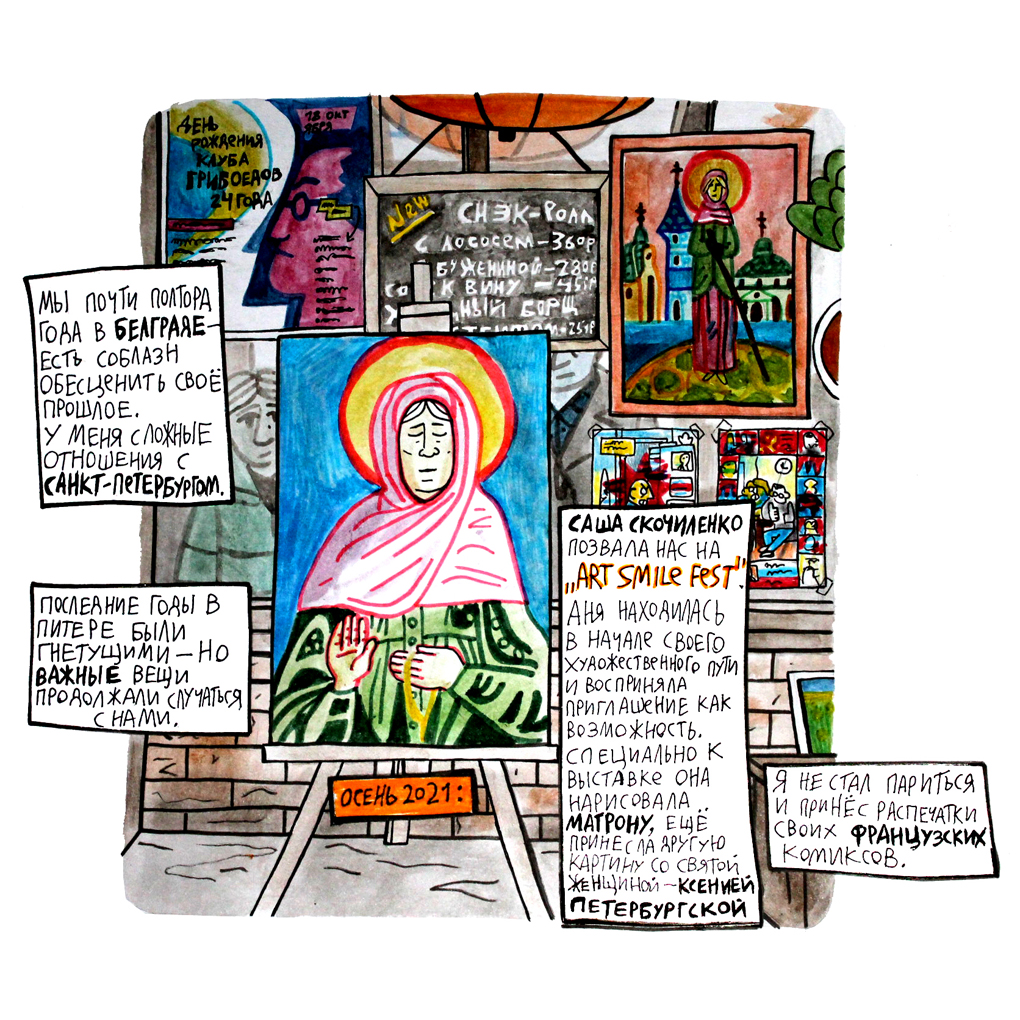 ДЕНЬ
РОЖДЕНИЯ
КЛУБА
ГРИБОЕДОВ
24 ГОДА
18 ОКТ
ЯБРЯ
New
СНЭК-РОЛЛ
С ЛОСОСЕМ-360Р
БУЖЕНИНОЙ-280Р
К ВИНУ
НЫЙ БОРЩ
МЫ ПОЧТИ ПОЛТОРА
ГОДА В БЕЛГРАДЕ-
ЕСТЬ СОБЛАЗН
ОБЕСЦЕНИТЬ СВОЁ
ПРОШЛОЕ.
У МЕНЯ СЛОЖНЫЕ
ОТНОШЕНИЯ С
САНКТ-ПЕТЕРБУРГОМ.
ПОСЛЕДНИЕ ГОДЫ В
ПИТЕРЕ БЫЛИ
ГНЕТУЩИМИ — НО
ВАЖНЫЕ ВЕЩИ
ПРОДОЛЖАЛИ СЛУЧАТЬСЯ
С НАМИ.
ОСЕНЬ 2021:
САША СКОЧИЛЕНКО
ПОЗВАЛА НАС НА
„ART SMILE FEST".
АНЯ НАХОДИЛАСЬ
В НАЧАЛЕ СВОЕГО
ХУДОЖЕСТВЕННОГО ПУТИ
И ВОСПРИНЯЛА
ПРИГЛАШЕНИЕ КАК
ВОЗМОЖНОСТЬ.
СПЕЦИАЛЬНО К
ВЫСТАВКЕ ОНА
НАРИСОВАЛА
МАТРОНУ, ЕЩЁ
ПРИНЕСЛА ДРУГУЮ
КАРТИНУ СО СВЯТОЙ
ЖЕНЩИНОЙ — КСЕНИЕЙ
ПЕТЕРБУРГСКОЙ
Я НЕ СТАЛ ПАРИТЬСЯ
И ПРИНЁС РАСПЕЧАТКИ
СВОИХ ФРАНЦУЗСКИХ
КОМИКСОВ.